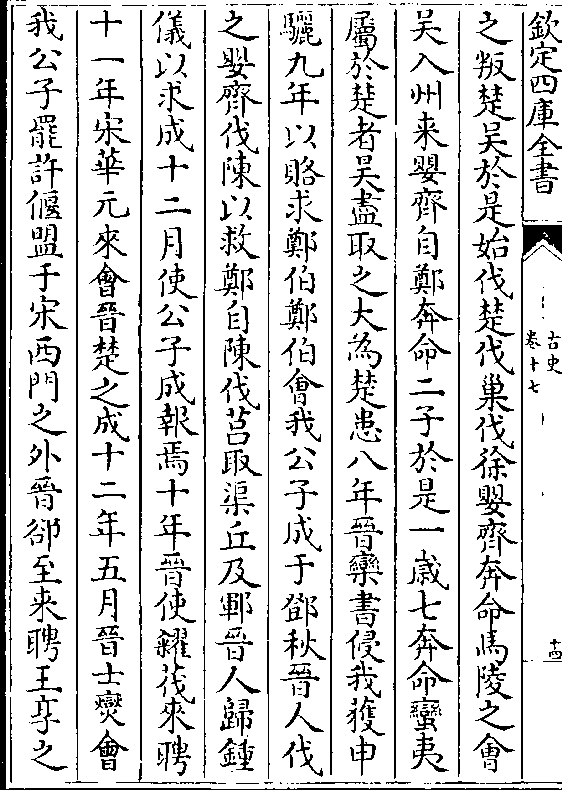 欽定四庫全書
古史
卷十七
十四
之叛楚吳於是始伐楚伐巢伐徐嬰齊奔命馬陵之會
吳入州来嬰齊自鄭奔命二子於是一歲七奔命蠻夷
屬於楚者吳盡取之大為楚患八年晉欒書侵我獲申
驪九年以賂求鄭伯鄭伯會我公子成于鄧秋晉人伐
之嬰齊伐陳以救鄭自陳伐莒取渠丘及鄆晉人歸鍾
儀以求成十二月使公子成報焉十年晉使糴茷來聘
十一年宋華元來會晉楚之成十二年五月晉士燮會
我公子罷許偃盟于宋西門之外晉郤至来聘王享之